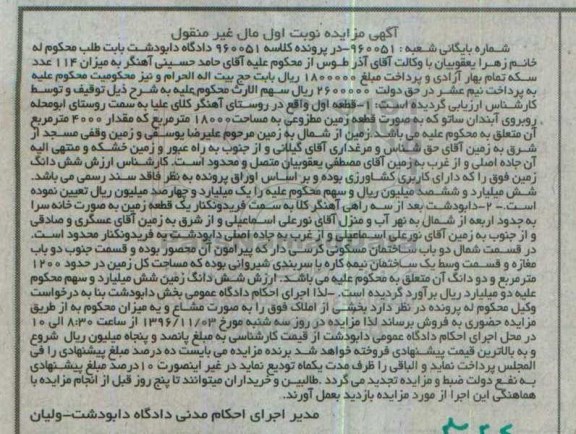 آگهی مزایده نوبت اول مال غیر منقول
شماره بایگانی شعبه : 960051-در پرونده کلاسه 960051 دادگاه دابودشت بابت طلب محکوم له
خانم زهرا یعقوبیان با وکالت آقای آذر طوس از محکوم علیه آقای حامد حسینی آهنگر به میزان 114 عدد
سکه تمام بهار آزادی و پرداخت مبلغ 1800000 ریال بابت حج بیت اله الحرام و نیز محکومیت محکوم علیه
به پرداخت نیم عشر در حق دولت 2600000 ریال سهم الارث محکوم علیه به شرح ذیل توقیف و توسط
کارشناس ارزیابی گردیده است : 1-قطعه اول واقع در روستای آهنگر کلای علیا به سمت روستای ابومحله
روبروی آبندان ساتو که به صورت قطعه زمین مطزوعی به مساحت 18000 مترمربع که مقدار 4000 مترمربع
آن متعلق به محکوم علیه می باشد. زمین از شمال به زمین مرحوم علیرضا یوسفی و زمین وقفی مسجد از
شرق به زمین آقای حق شناس و مرغداری آقای گیلانی و از جنوب به راه عبور و زمین خشکه و منتهی الیه
آن جاده اصلی و از غرب به زمین آقای مصطفی یعقوبیان متصل و محدود است. کارشناس ارزش شش دانگ
زمین فوق را که دارای کاربری کشاورزی بوده و بر اساس اوراق پرونده به نظر فاقد سند رسمی می باشد.
شش میلیارد و ششصد میلیون ریال و سهم محکوم علیه را یک میلیارد و چهارصد میلیون ریال تعیین نموده
است.- 2-دابودشت بعد از سه راهی آهنگر کلا به سمت فریدونکنار یک قطعه زمین به صورت خانه سرا
به حدود اربعه از شمال به نهر آب و منزل آقای نورعلی اسماعیلی و از شرق به زمین آقای عسگری و صادقی
و از جنوب به زمین آقای نورعلی اسماعیلی و از غرب به جاده اصلی دابودشت به فریدونکنار محدود است.
در قسمت شمال دو باب ساختمان مسکونی کرسی دار که پیرامون آن محصور بوده و قسمت جنوب دو باب
مغازه و قسمت وسط یک ساختمان نیمه کاره با سربندی شیروانی بوده که مساحت کل زمین در حدود 1200
مترمربع و دو دانگ آن متعلق به محکوم علیه می باشد. ارزش شش دانگ زمین شش میلیارد و سهم محکوم
علیه دو میلیارد ریال برآورد گردیده است. -لذا اجرای احکام دادگاه عمومی بخش دابودشت بنا به درخواست
وکیل محکوم له پرونده در نظر دارد بخشی از املاک فوق را به صورت مشاع و به میزان محکوم به از طریق
مزایده حضوری به فروش برساند لذا مزایده در روز سه شنبه مورخ 1396/11/03 از ساعت 8:30 الی 10
در محل اجرای احکام دادگاه عمومی دابودشت از قیمت کارشناسی به مبلغ پانصد و پنجاه میلیون ریال شروع
و به بالاترین قیمت پیشنهادی فروخته خواهد شد برنده مزایده می بایست ده درصد مبلغ پیشنهادی را فی
المجلس پرداخت نماید و الباقی را ظرف مدت یکماه تودیع نماید در غیر اینصورت 10 درصد مبلغ پیشنهادی
به نفع دولت ضبط و مزایده تجدید می گردد .طالبین و خریداران میتوانند تا پنج روز قبل از انجام مزایده با
هماهنگی این اجرا از مورد مزایده بازدید بعمل آورند.
مدیر اجرای احکام مدنی دادگاه دابودشت-ولیان